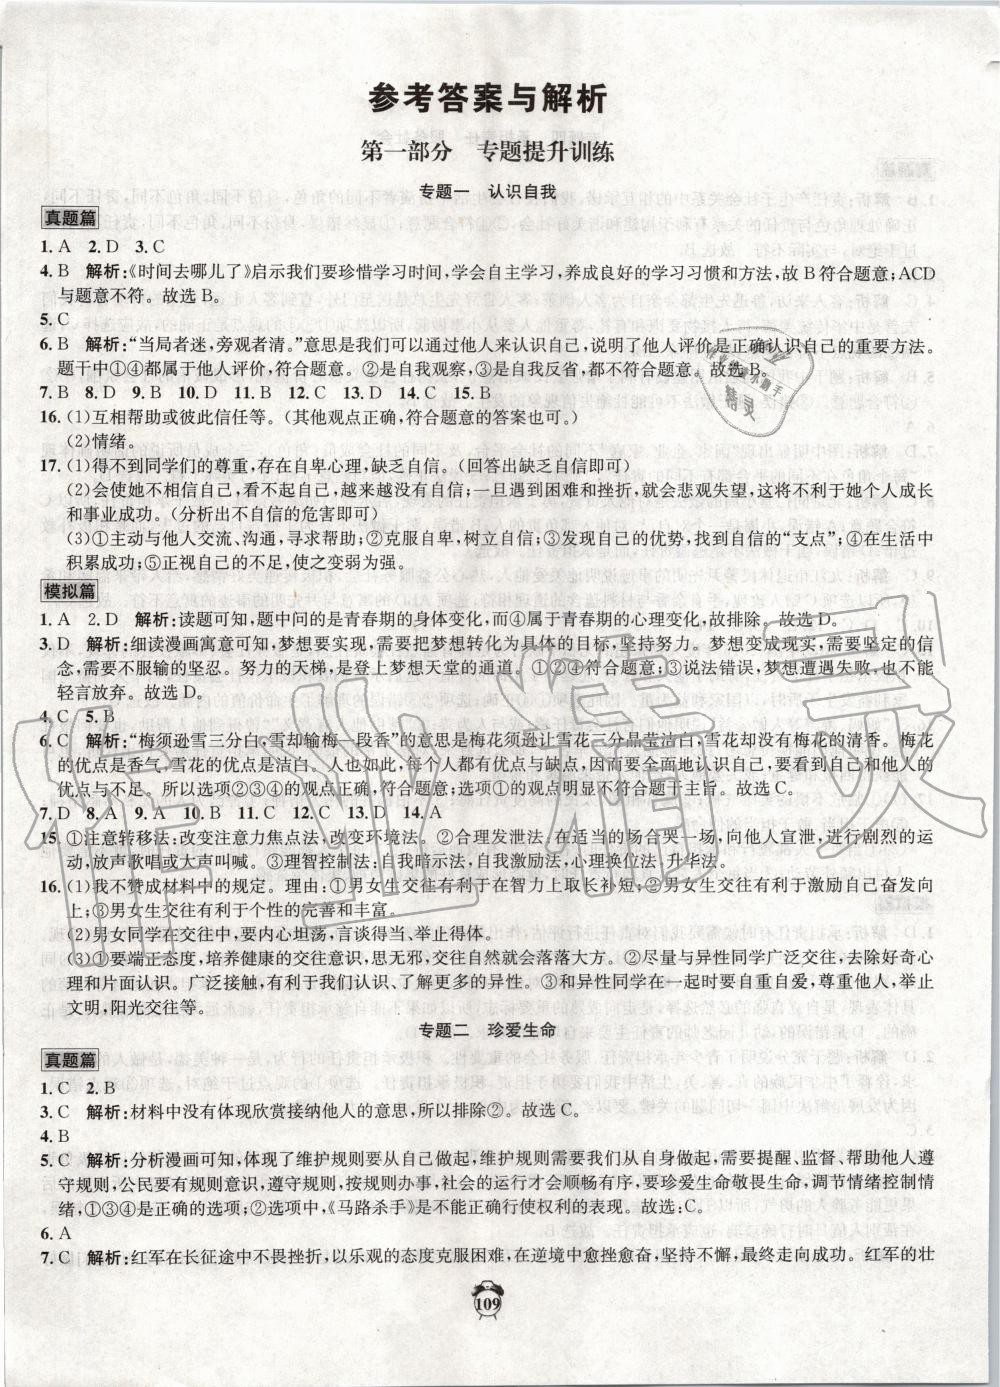 参考答案与解析
第一部分　专题提升训练
专题一　认识自我
真题篇
1. A　2. D　3. C
4. B　解析:《时间去哪儿了》启示我们要珍惜学习时间,学会自主学习,养成良好的学习习惯和方法,故 B 符合题意;ACD
与题意不符。故选 B。
5. C
6. B　解析:“当局者迷,旁观者清。”意思是我们可以通过他人来认识自己,说明了他人评价是正确认识自己的重要方法。
题干中①④都属于他人评价,符合题意。②是自我观察,③是自我反省,都不符合题意。故选 B。
7. B　8. D　9. B　10. D　11. B　12. D　13. D　14. C　15. B
16. (1)互相帮助或彼此信任等。(其他观点正确,符合题意的答案也可)
(2)情绪。
17. (1)得不到同学们的尊重,存在自卑心理,缺乏自信。(回答出缺乏自信即可)
(2)会使她不相信自己,看不起自己,越来越没有自信;一旦遇到困难和挫折,就会悲观失望,这将不利于她个人成长
和事业成功。(分析出不自信的危害即可)
(3)①主动与他人交流、沟通,寻求帮助;②克服自卑,树立自信;③发现自己的优势,找到自信的“支点”;④在生活中
积累成功;⑤正视自己的不足,使之变弱为强。
模拟篇
1. A　2. D　解析:读题可知,题中问的是青春期的身体变化,而④属于青春期的心理变化,故排除。故选 D。
3. D　解析:细读漫画寓意可知,梦想要实现,需要把梦想转化为具体的目标,坚持努力。梦想变成现实,需要坚定的信
念,需要不服输的坚忍。努力的天梯,是登上梦想天堂的通道。①②④符合题意;③说法错误,梦想遭遇失败,也不能
轻言放弃。故选 D。
4. C　5. B
6. C　解析:“梅须逊雪三分白,雪却输梅一段香”的意思是梅花须逊让雪花三分晶莹洁白,雪花却没有梅花的清香。梅花
的优点是香气,雪花的优点是洁白。人也如此,每个人都有优点与缺点,因而要全面地认识自己,要用自己和他人的
优点与不足。所以选项②③④的观点正确,符合题意;选项①的观点明显不符合主旨。故选 C。
7. D　8. A　9. A　10. B　11. C　12. C　13. D　14. A
15. ①注意转移法:改变注意力焦点法,改变环境法。②合理发泄法:在适当的场合哭一场,向他人宣泄,进行剧烈的运
动,放声歌唱或大声叫喊。③理智控制法:自我暗示法,自我激励法,心理换位法,升华法。
16. (1)我不赞成材料中的规定。理由:①男女生交往有利于在智力上取长补短;②男女生交往有利于激励自己奋发向
上;③男女生交往有利于个性的完善和丰富。
(2)男女同学在交往中,要内心坦荡,言谈得当、举止得体。
(3)①要端正态度,培养健康的交往意识,思无邪,交往自然就会落落大方。②尽量与异性同学广泛交往,去除好奇心
理和片面认识。广泛接触,有利于我们认识、了解更多的异性。③和异性同学在一起时要自重自爱,尊重他人,举止
文明,阳光交往等。
专题二　珍爱生命
真题篇
1. C　2. B
3. C　解析:材料中没有体现欣赏接纳他人的意思,所以排除②。故选 C。
4. B
5. C　解析:分析漫画可知,体现了维护规则要从自己做起,维护规则需要我们从自身做起,需要提醒、监督、帮助他人遵
守规则,公民要有规则意识,遵守规则,按规则办事,社会的运行才会顺畅有序,要珍爱生命敬畏生命,调节情绪控制情
绪,①③④是正确的选项;②选项中,《马路杀手》是不能正确行使权利的表现。故选:C。
6. A
7. C　解析:红军在长征途中不畏挫折,以乐观的态度克服困难,在逆境中愈挫愈奋、坚持不懈,最终走向成功。红军的壮
109
作业精灵